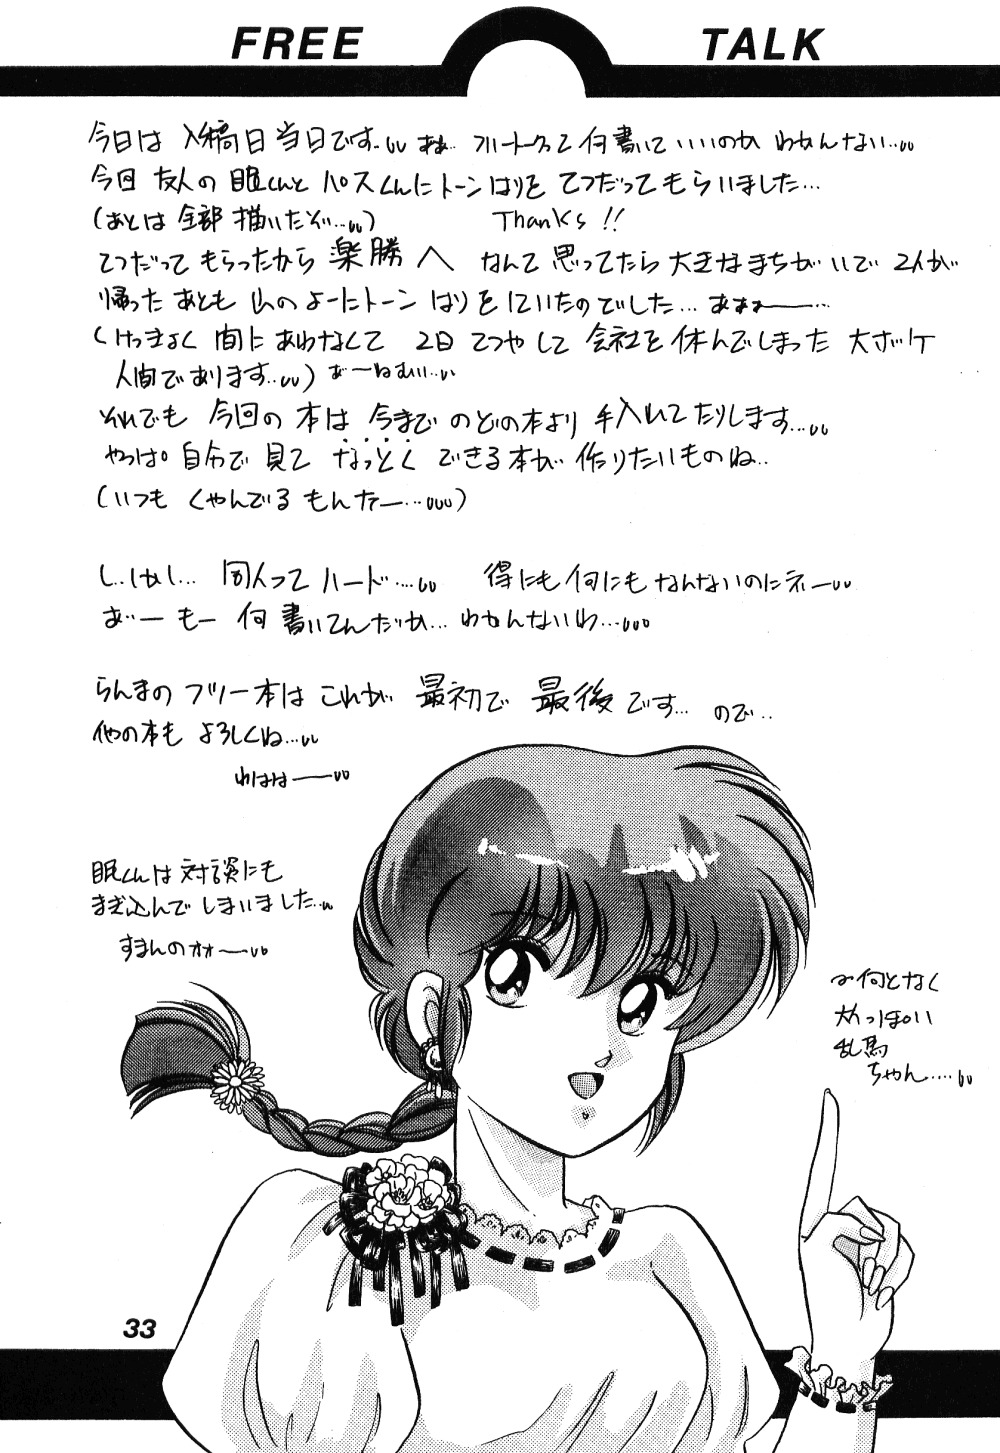 FREE TALK
今日は 入稿日当日です…〃 ああ… フリートークって何書いていいのか わかんない…〃
今回 友人の 眠くんと パスくんにトーンはりを てつだってもらいました…
(あとは全部描いたぞ…〃) Thanks!!
てつだって もらったから 楽勝へ なんて 思ってたら 大きなまちがいで 2人が
帰った あとも 山のよーにトーン はりをしていたのでした… あぁぁー…
(けっきょく 間にあわなくて 2日 てつやして 会社を 休んでしまった 大ボケ
人間であります…〃) あ〜ねむい…〃
それでも 今回の 本は 今まで のどの本より 手入れてたりします…〃
やっぱ自分で 見て なっとく できる本が 作りたいものね…
(いつも くやんでるもんなー…〃)
し…しかし… 同人って ハード…〃 得にも何にもなんないのにネー〃
あ〜 もー 何 書いてんだか… わかんないわ…〃
らんまの フリー本は これが 最初で 最後です… ので…
他の本も よろしくね…〃
わはは――〃
眠くんは 対談にも
まぎ込んで しまいました…〃
すまんのォォー〃
〜何となく
かっぽいい
乱馬
ちゃん……〃
33